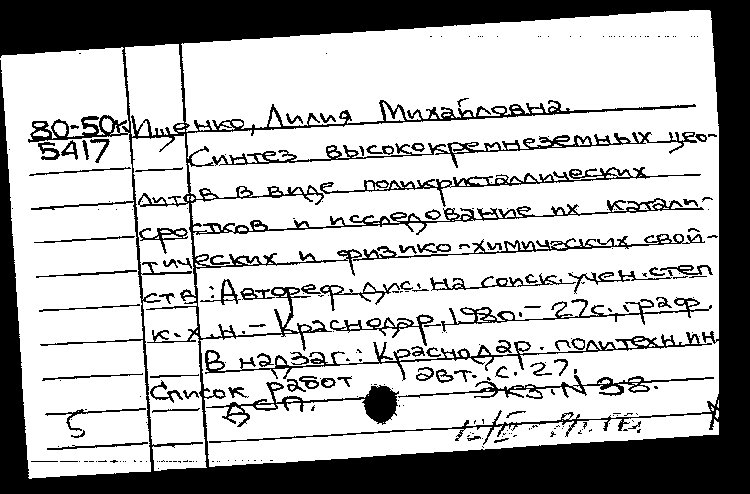 80-50к Ищенко, Лилия Михайловна.
5417
Синтез высококремнеземных цео-
литов в виде поликристаллических
сростков и исследование их катали-
тических и физико-химических свой-
ств: Автореф. дис. на соиск. учен. степ
к.х.н. - Краснодар, 1980. - 27с., граф.
В надзаг.: Краснодар. политехн. ин.
Список работ авт.: с. 27.
ДСП. Экз. N 38.
5